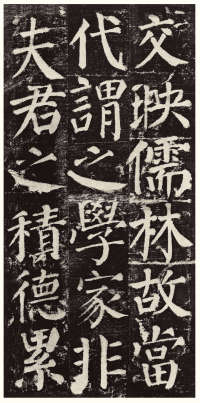 交暎儒林故當
代謂之學家非
夫君之積德累